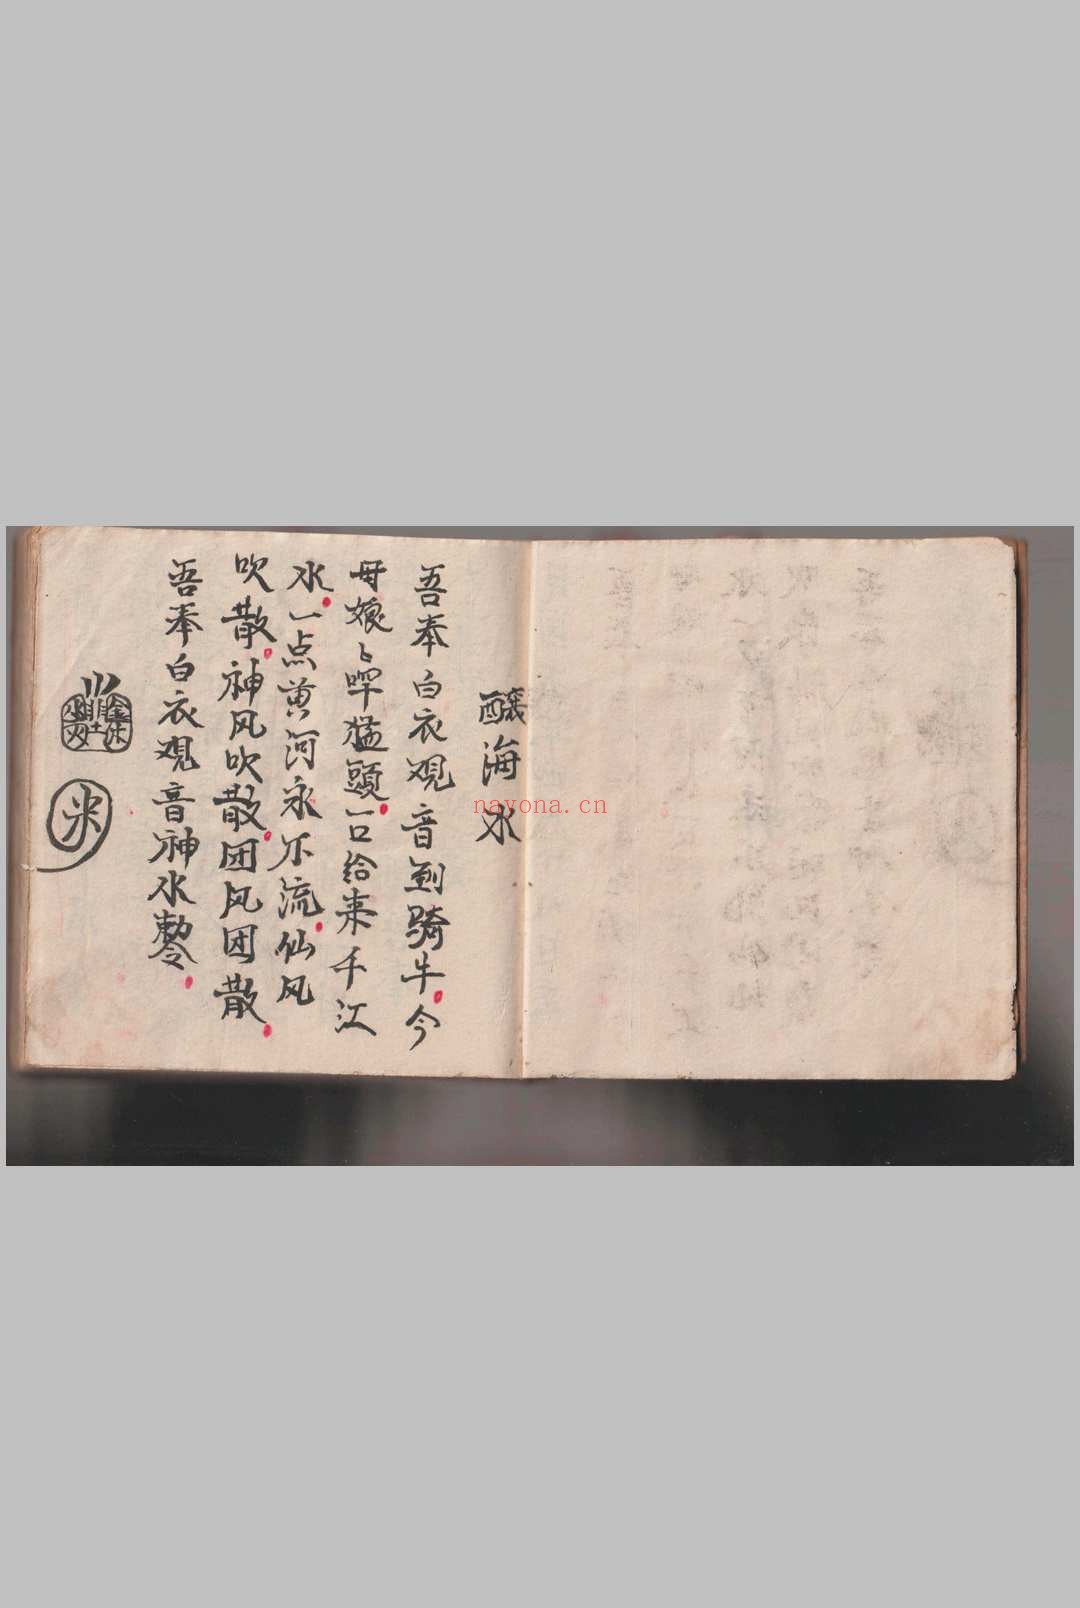 釀海水
吾奉白衣观音到骑牛今
母娘〻啐猛頭一口给来千江
水一点黄河永不流仙风
吹散神风吹散团风团散
吾奉白衣观音神水勅令
金木水火土
米
nayona.cn